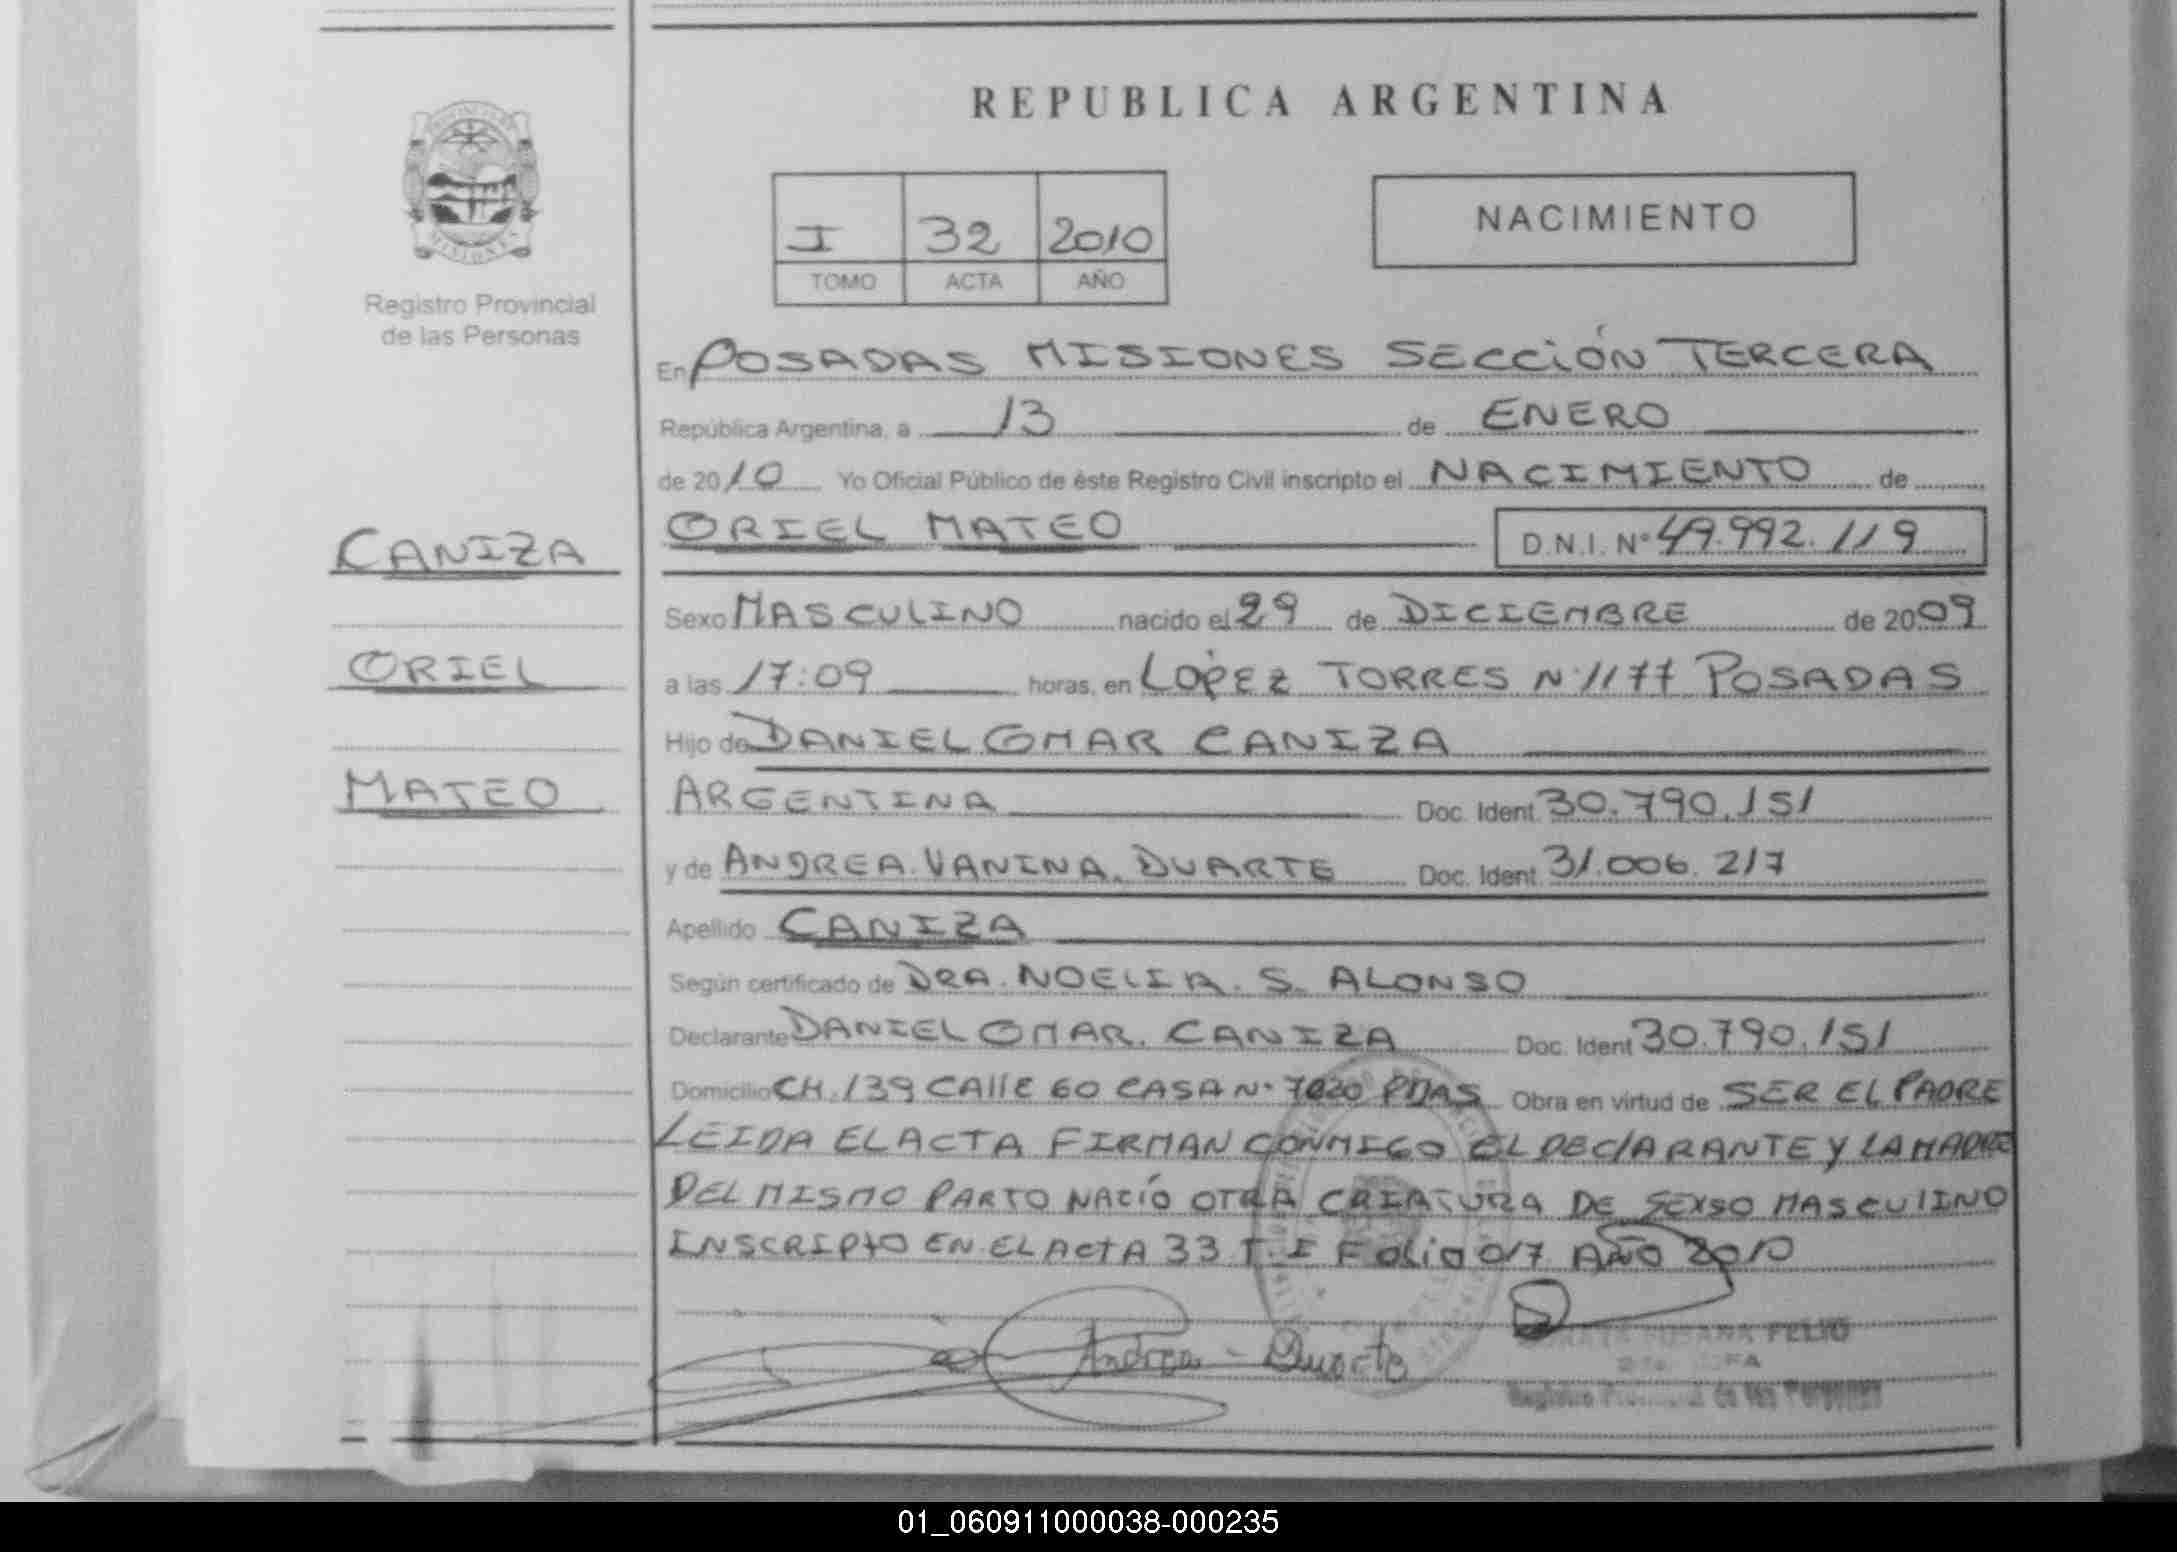 REPUBLICA ARGENTINA
NACIMIENTO
I 32 2010
TOMO ACTA AÑO
Registro Provincial
de las Personas
En POSADAS MISIONES SECCIÓN TERCERA
República Argentina, a 13 de ENERO
de 2010 Yo Oficial Público de éste Registro Civil inscripto el NACIMIENTO de
ORIEL MATEO D.N.I. Nº 49.992.119
CANIZA
ORIEL
MATEO
Sexo MASCULINO nacido el 29 de DICIEMBRE de 2009
a las 17:09 horas, en LOPEZ TORRES Nº 1177 POSADAS
Hijo de DANIEL OMAR CANIZA
ARGENTINA Doc. Ident. 30.790.151
y de ANDREA VANINA DUARTE Doc. Ident. 31.006.217
Apellido CANIZA
Según certificado de DRA. NOELIA. S. ALONSO
Declarante DANIEL OMAR CANIZA Doc. Ident 30.790.151
Domicilio CH. 139 CALLE 60 CASA Nº PDAS Obra en virtud de SER EL PADRE
LEIDA EL ACTA FIRMAN CONMIGO EL DECLARANTE Y LA MADRE
DEL MISMO PARTO NACIÓ OTRA CRIATURA DE SEXSO MASCULINO
INSCRIPTO EN EL ACTA 33 T. I FOLIO 017 AÑO 2010
Andrea - Duarte
SUSANA FELIO
Registro Provincial de las Personas
01_060911000038-000235